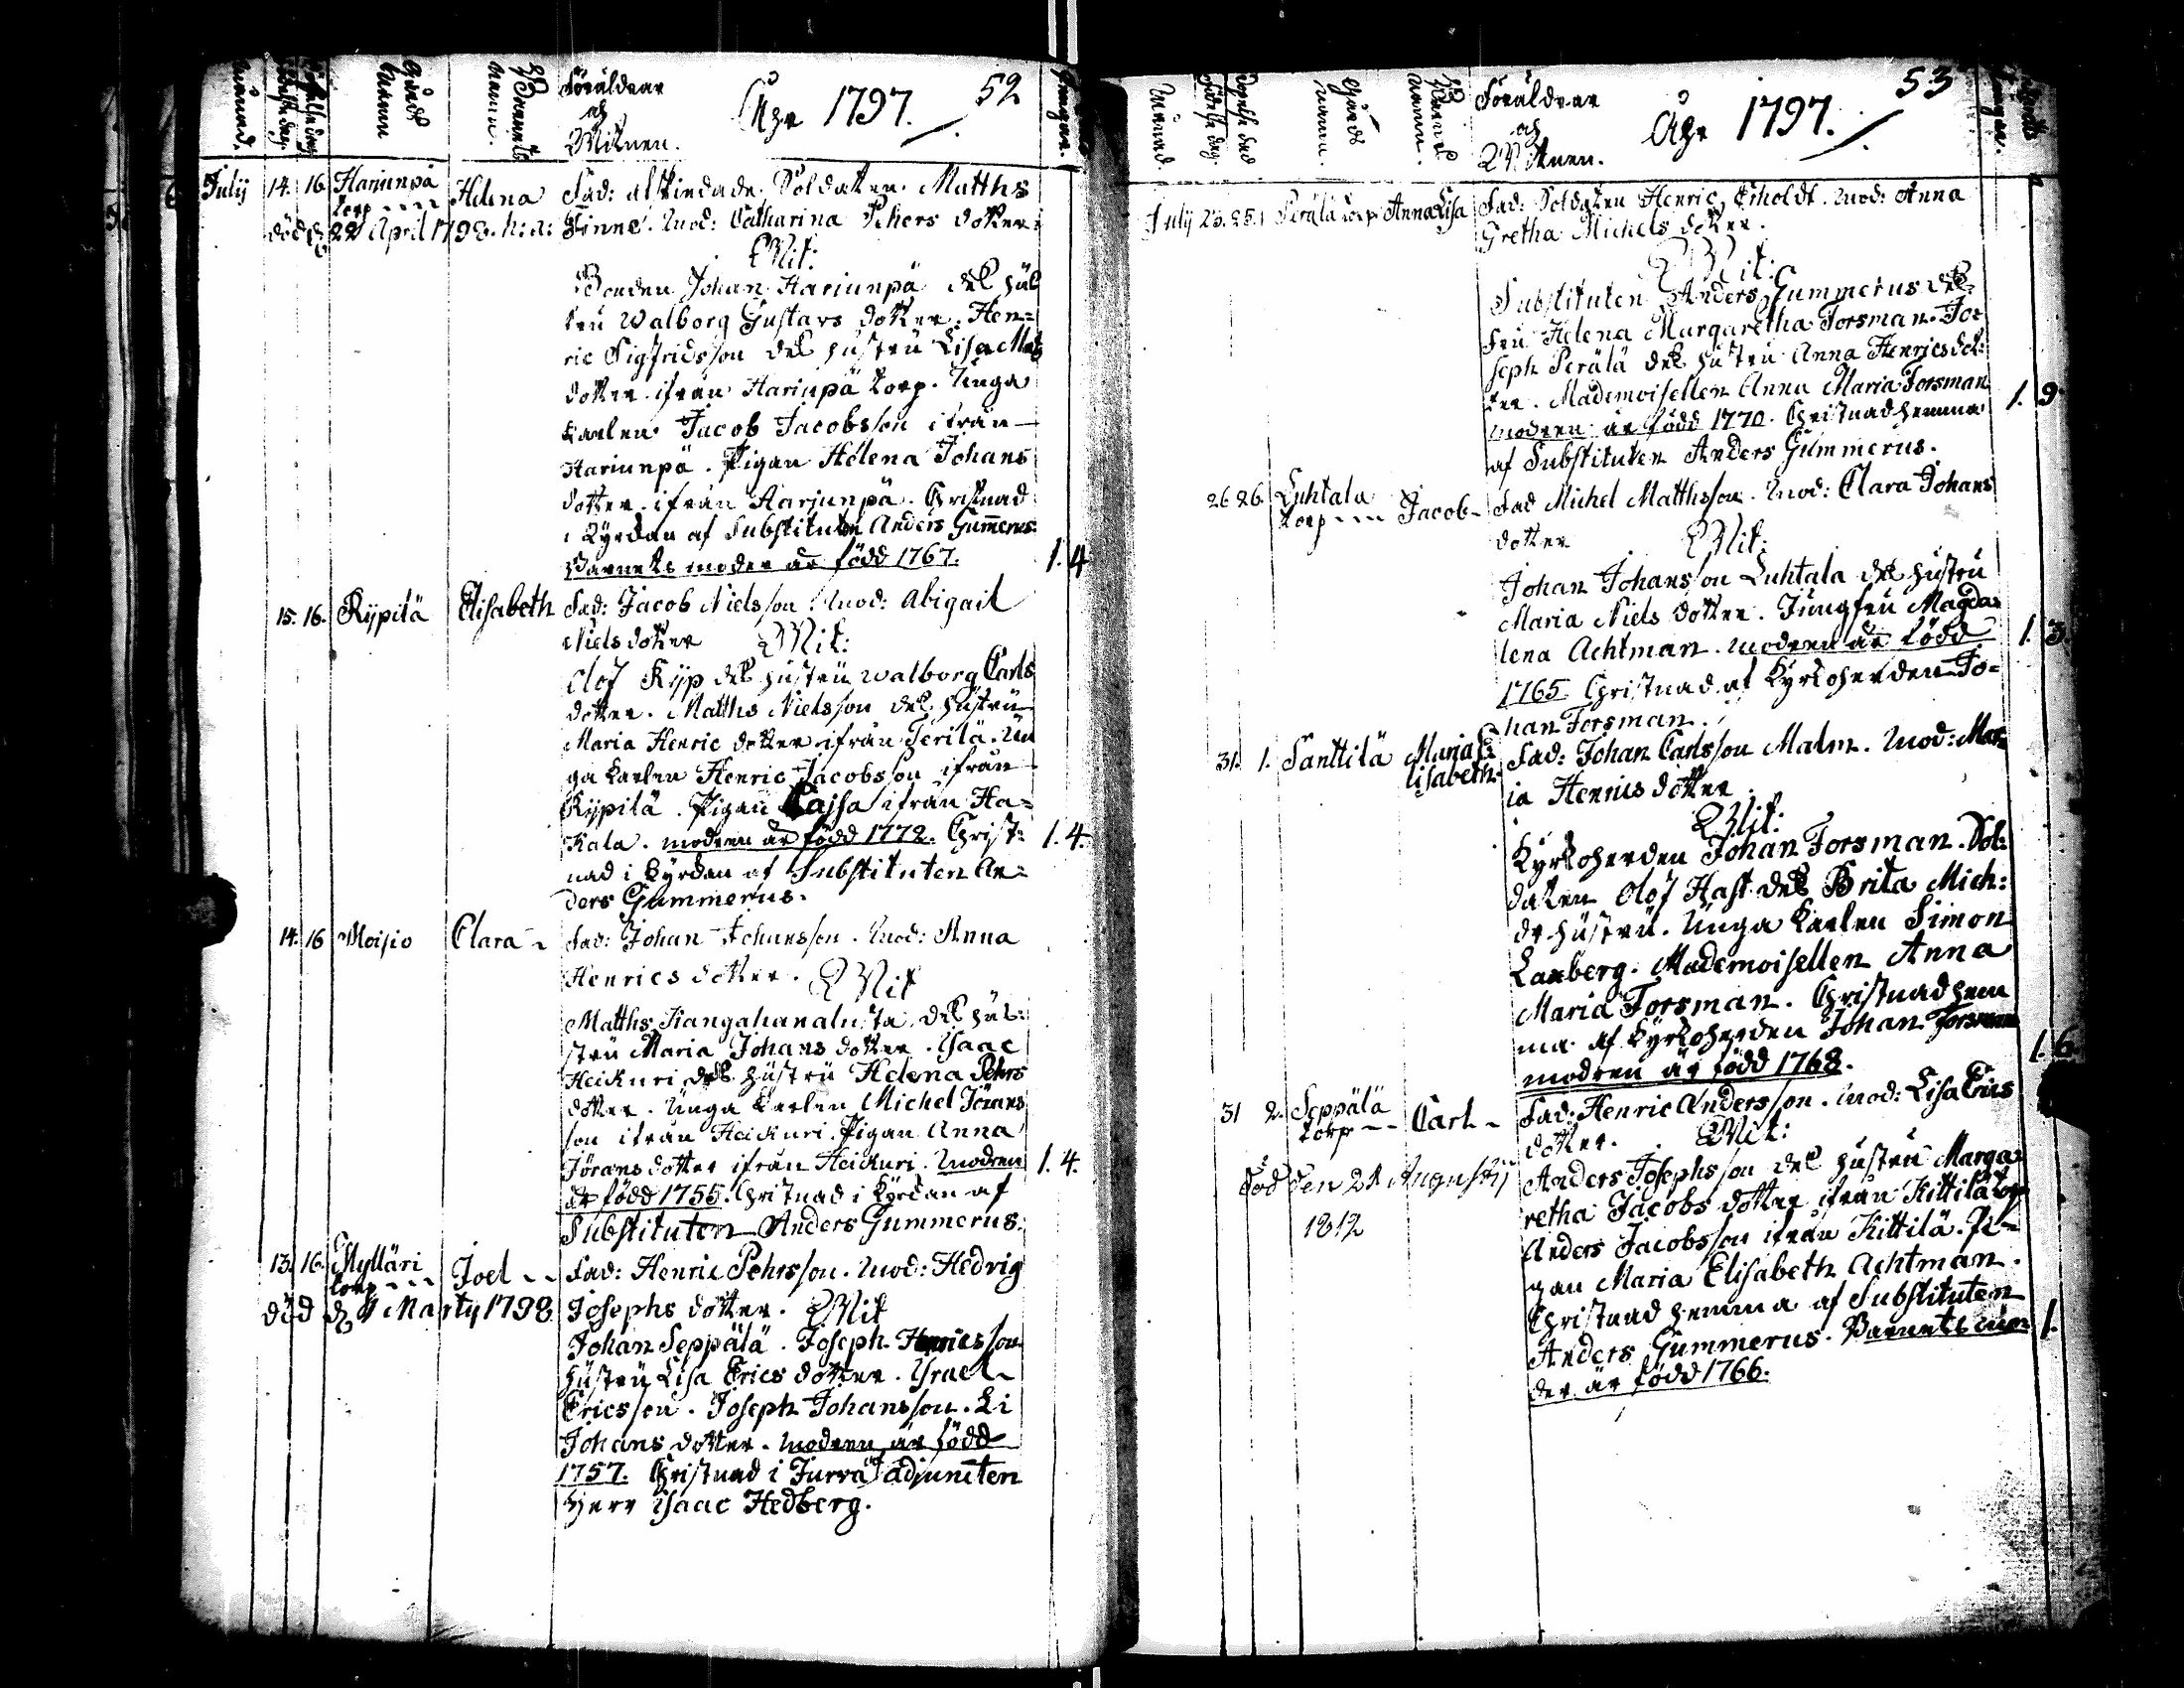 Månad.
Födelse dag.
Döpelse dag
Gårds namn
Barnets namn.
Föräldrar och Witnen.
Åhr 1797.
52
July 14. 16. Hariunpä torp Helena Fad: afskiedade Soldaten Matths
död d 22 April 1798. Finne. Mod: Catharina Pehrs dotter
Wit:
Bonden Johan Hariunpä des hus
tru Walborg Gustavs dotter. Hen=
ric Sigfridsson des hustru Lisa Mats
dotter ifrån Hariunpä torp. Unga
karlen Jacob Jacobsson ifrån
Hariunpä. Pigan Helena Johans
dotter ifrån Harjunpä. Christnad
i Kyrckan af Substituten Anders Gum̄erus
Barnets moder är född 1767. 1. 4
15. 16. Kypilä Elisabeth Fad: Jacob Nielsson. Mod: Abigail
Niels dotter Wit:
Olof Kyp des hustru Walborg Carls
dotter. Matths Nielsson des hustru
Maria Henric dotter ifrån Perilä. Un
ga karlen Henric Jacobsson ifrån
Kypilä. Pigan Cajsa ifrån Ha=
kala. modren är född 1772. Christ= 1. 4.
nad i kyrckan af Substituten An=
ders Gummerus.
14. 16 Moisio Clara Fad: Johan Johansson. Mod: Anna
Henrics dotter. Wit
Matths Kangahanalusta des hus=
stru Maria Johans dotter. Isaac
Heickuri des hustru Helena Pehrs
dotter. Unga karlen Michel Jörans
son ifrån Heickuri. Pigan Anna
Jörans dotter ifrån Heickuri. Modren 1. 4.
är född 1755. Christnad i Kyrckan af
Substituten Anders Gummerus.
13. 16. Mylläri torp Joel Fad: Henric Pehrsson. Mod: Hedvig
död d 4 Marty 1798 Josephs dotter. Wit
Johan Seppälä. Joseph Henricsson
hustru Lisa Erics dotter. Israel
Ericsson. Joseph Johansson. Li
Johans dotter. modren är född
1757. Christnad i Jurva adjuncten
Herr Isaac Hedberg.
Månad.
Födelse dag.
Döpelse dag
Gårds namn.
Barnets namn.
Föräldrar och Witnen.
Åhr 1797.
53
July 23. 25. Perälä torp Anna Lisa Fad: Soldaten Henric Erholdt. Mod: Anna
Gretha Michels dotter.
Wit:
Substituten Anders Gummerus des
fru Helena Margaretha Forsman. Jo=
seph Perälä des hustru Anna Henrics dot=
ter. Mademoisellen Anna Maria Forsman 1. 9.
modren är född 1770. Christnad hemma
af Substituten Anders Gummerus.
26 26. Luhtala torp Jacob Fad Michel Matthsson. Mod: Clara Johans
dotter Wit:
Johan Johansson Luhtala des hustru
Maria Niels dotter. Jungfru Magda=
lena Achtman. modren är född 1. 3.
1765. Christnad af Kyrkoherden Jo=
han Forsman.
31. 1. Santtilä Maria Elisabeth Fad: Johan Carlsson Malm. Mod: Mar=
ia Henrics dotter
Wit:
Kyrkoherden Johan Forsman. Sol=
daten Olof Hast des Brita Mich:
dr hustru. Unga karlen Simon
Lanberg. Mademoisellen Anna
Maria Forsman. Christnad hem
ma af Kyrkoherden Johan Forsman
modren är född 1768. 1. 6.
31 2. Seppälä torp Carl Fad: Henric Andersson. Mod: Lisa Erics
dotter. Wit:
död den 21 Augusty 1812 Anders Josephsson des hustru Marga=
retha Jacobs dotter ifrån Kittilä torp
Anders Jacobsson ifrån Kittilä. Pi=
gan Maria Elisabeth Achtman.
Christnad hemma af Substituten
Anders Gummerus. Barnets mo= 1.
der är född 1766.